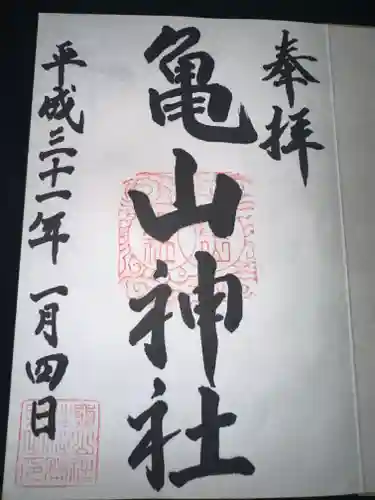 奉拝
亀山神社
平成三十一年一月四日